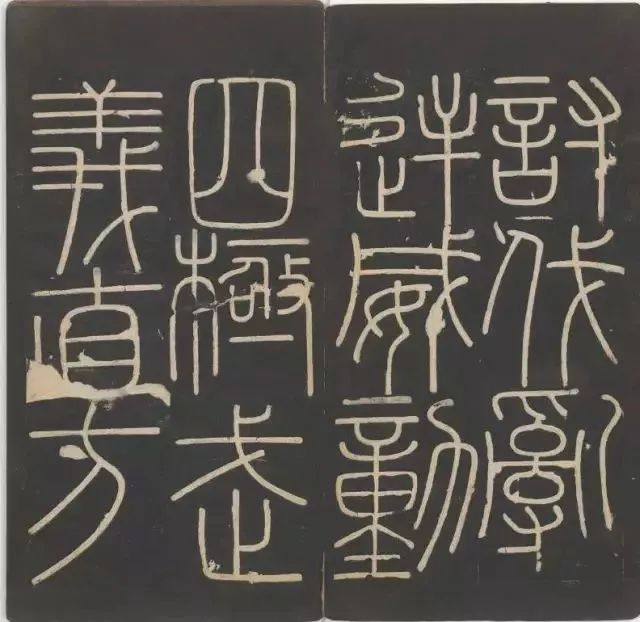 討伐亂
逆威動
四極武
義直方